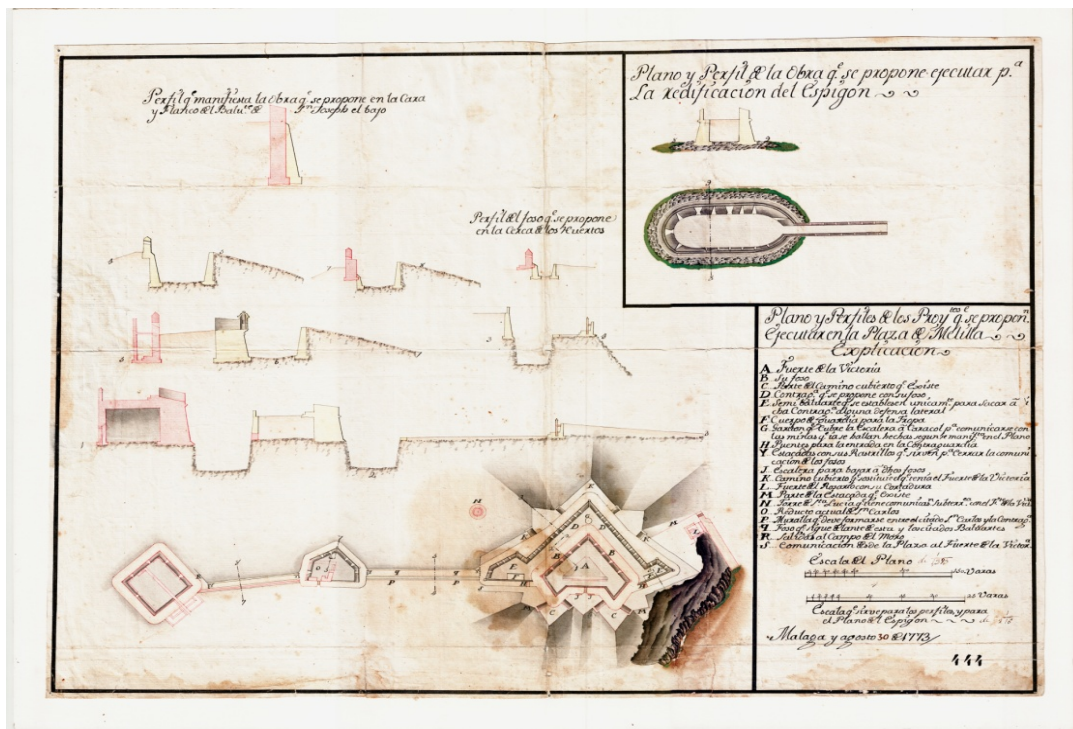 Perfil qᵉ manifiesta la Obra qᵉ se propone en la Cara
y Flanco del Balu.ᵗᵉ de S.ⁿ Joseph el bajo
Plano y Perfil de la Obra qᵉ se propone executar p.ᵃ
La redificacion del Espigon
Perfil del foso qᵉ se propone
en la Cerca de los Huertos
Plano y Perfiles de los Proy.ᵗᵒˢ qᵉ se propon.ⁿ
Executar en la Plaza de Melilla
Explicacion
A Fuerte de la Victoria
B Su foso
C Parte del Camino cubierto qᵉ Existe
D Contrag.ᵃ qᵉ se propone con su foso
E Semi Baluartes qᵉ se establesen unicam.ᵗᵉ para sacar â
cha Contrag.ᵃ alguna defensa lateral
F Cuerpo de Guardia para la Tropa
G qᵉ cubre la Escalera â Caracol p.ᵃ comunicarse con
las minas qᵉ ia se hallan hechas segun se manif.ᵗᵃ en el Plano
H Puentes para la entrada en la Contraguardia
Y Estacadas con sus Rastrillos qᵉ sirven p.ᵃ Cerrar la comuni
cacion de los fosos
J Escalera para bajar â dhos fosos
K Camino cubierto qᵉ sostituie el qᵉ tenia el Fuerte de la Victoria
L Fuerte del Rosario con su Cortadura
M Parte de la Estacada qᵉ Existe
N Torre de S.ᵗᵃ Lucia qᵉ tiene comunicas.ⁿ Subterr.ᵃ con el F.ᵗᵉ de la Vict
O Reducto actual de S.ⁿ Carlos
P Muralla qᵉ deve formarse entre el citado S.ⁿ Carlos y la Contrag.ᵃ
q Foso qᵉ sigue delante de esta y los citados Baluartes
R Salidas al Campo del Moro
S Comunicacion desde la Plaza al Fuerte de la Victor.ᵃ
Escala del Plano
Varas
35 Varas
Escala qᵉ sirve para los perfiles y para
el Plano del Espigon
Malaga y agosto 30 de 1773
444